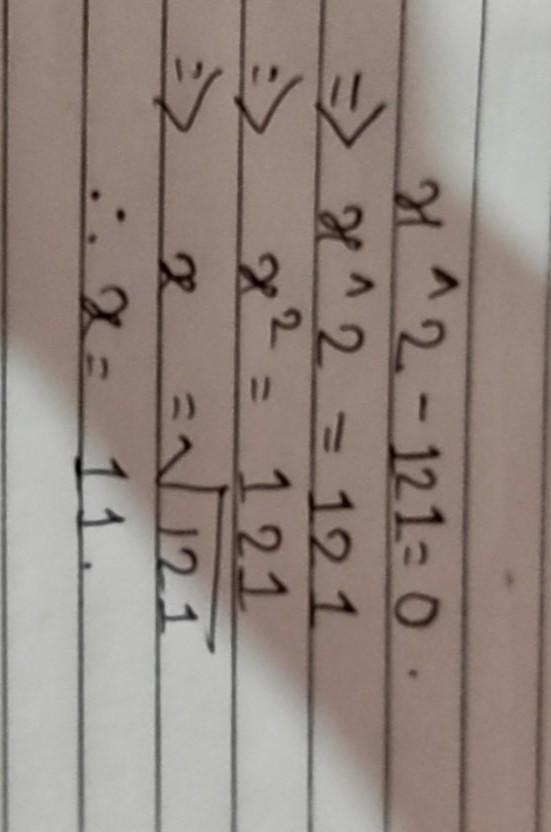 x ^ 2 - 121 = 0.
⇒ x ^ 2 = 121
⇒ x² = 121
⇒ x = √121
∴ x = 11.